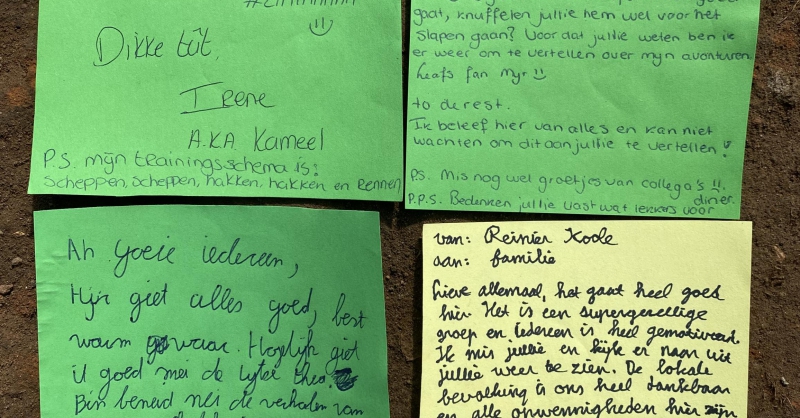 Dikke tût,
Irene
A.K.A. Kameel
P.S. mijn trainingsschema is:
scheppen, scheppen, hakken, hakken en rennen
gaat, knuffelen jullie hem wel voor het
slapen gaan? Voor dat jullie weten ben ik
er weer om te vertellen over myn avonturen
heafs fan myr
to de rest.
Ik beleef hier van alles en kan niet
wachten om dit aan jullie te vertellen!
PS. Mis nog wel groetjes van collega's !!.
P.P.S. Bedenken jullie vast wat lekkers voor diner.
Ah goeie iedereen,
Hijr giet alles goed, best
waarm waar. Hooplijk giet
it goed mei de lytse theo
Bin benend nei de verhalen van
van: Reinier Koole
aan: familie
Lieve allemaal, het gaat heel goed
hier. Het is een supergezellige
groep en iedereen is heel gemotiveerd.
Ik mis jullie en kijk er naar uit
jullie weer te zien. De lokale
bevolking is ons heel dankbaar
en alle onwennigheden hier zijn